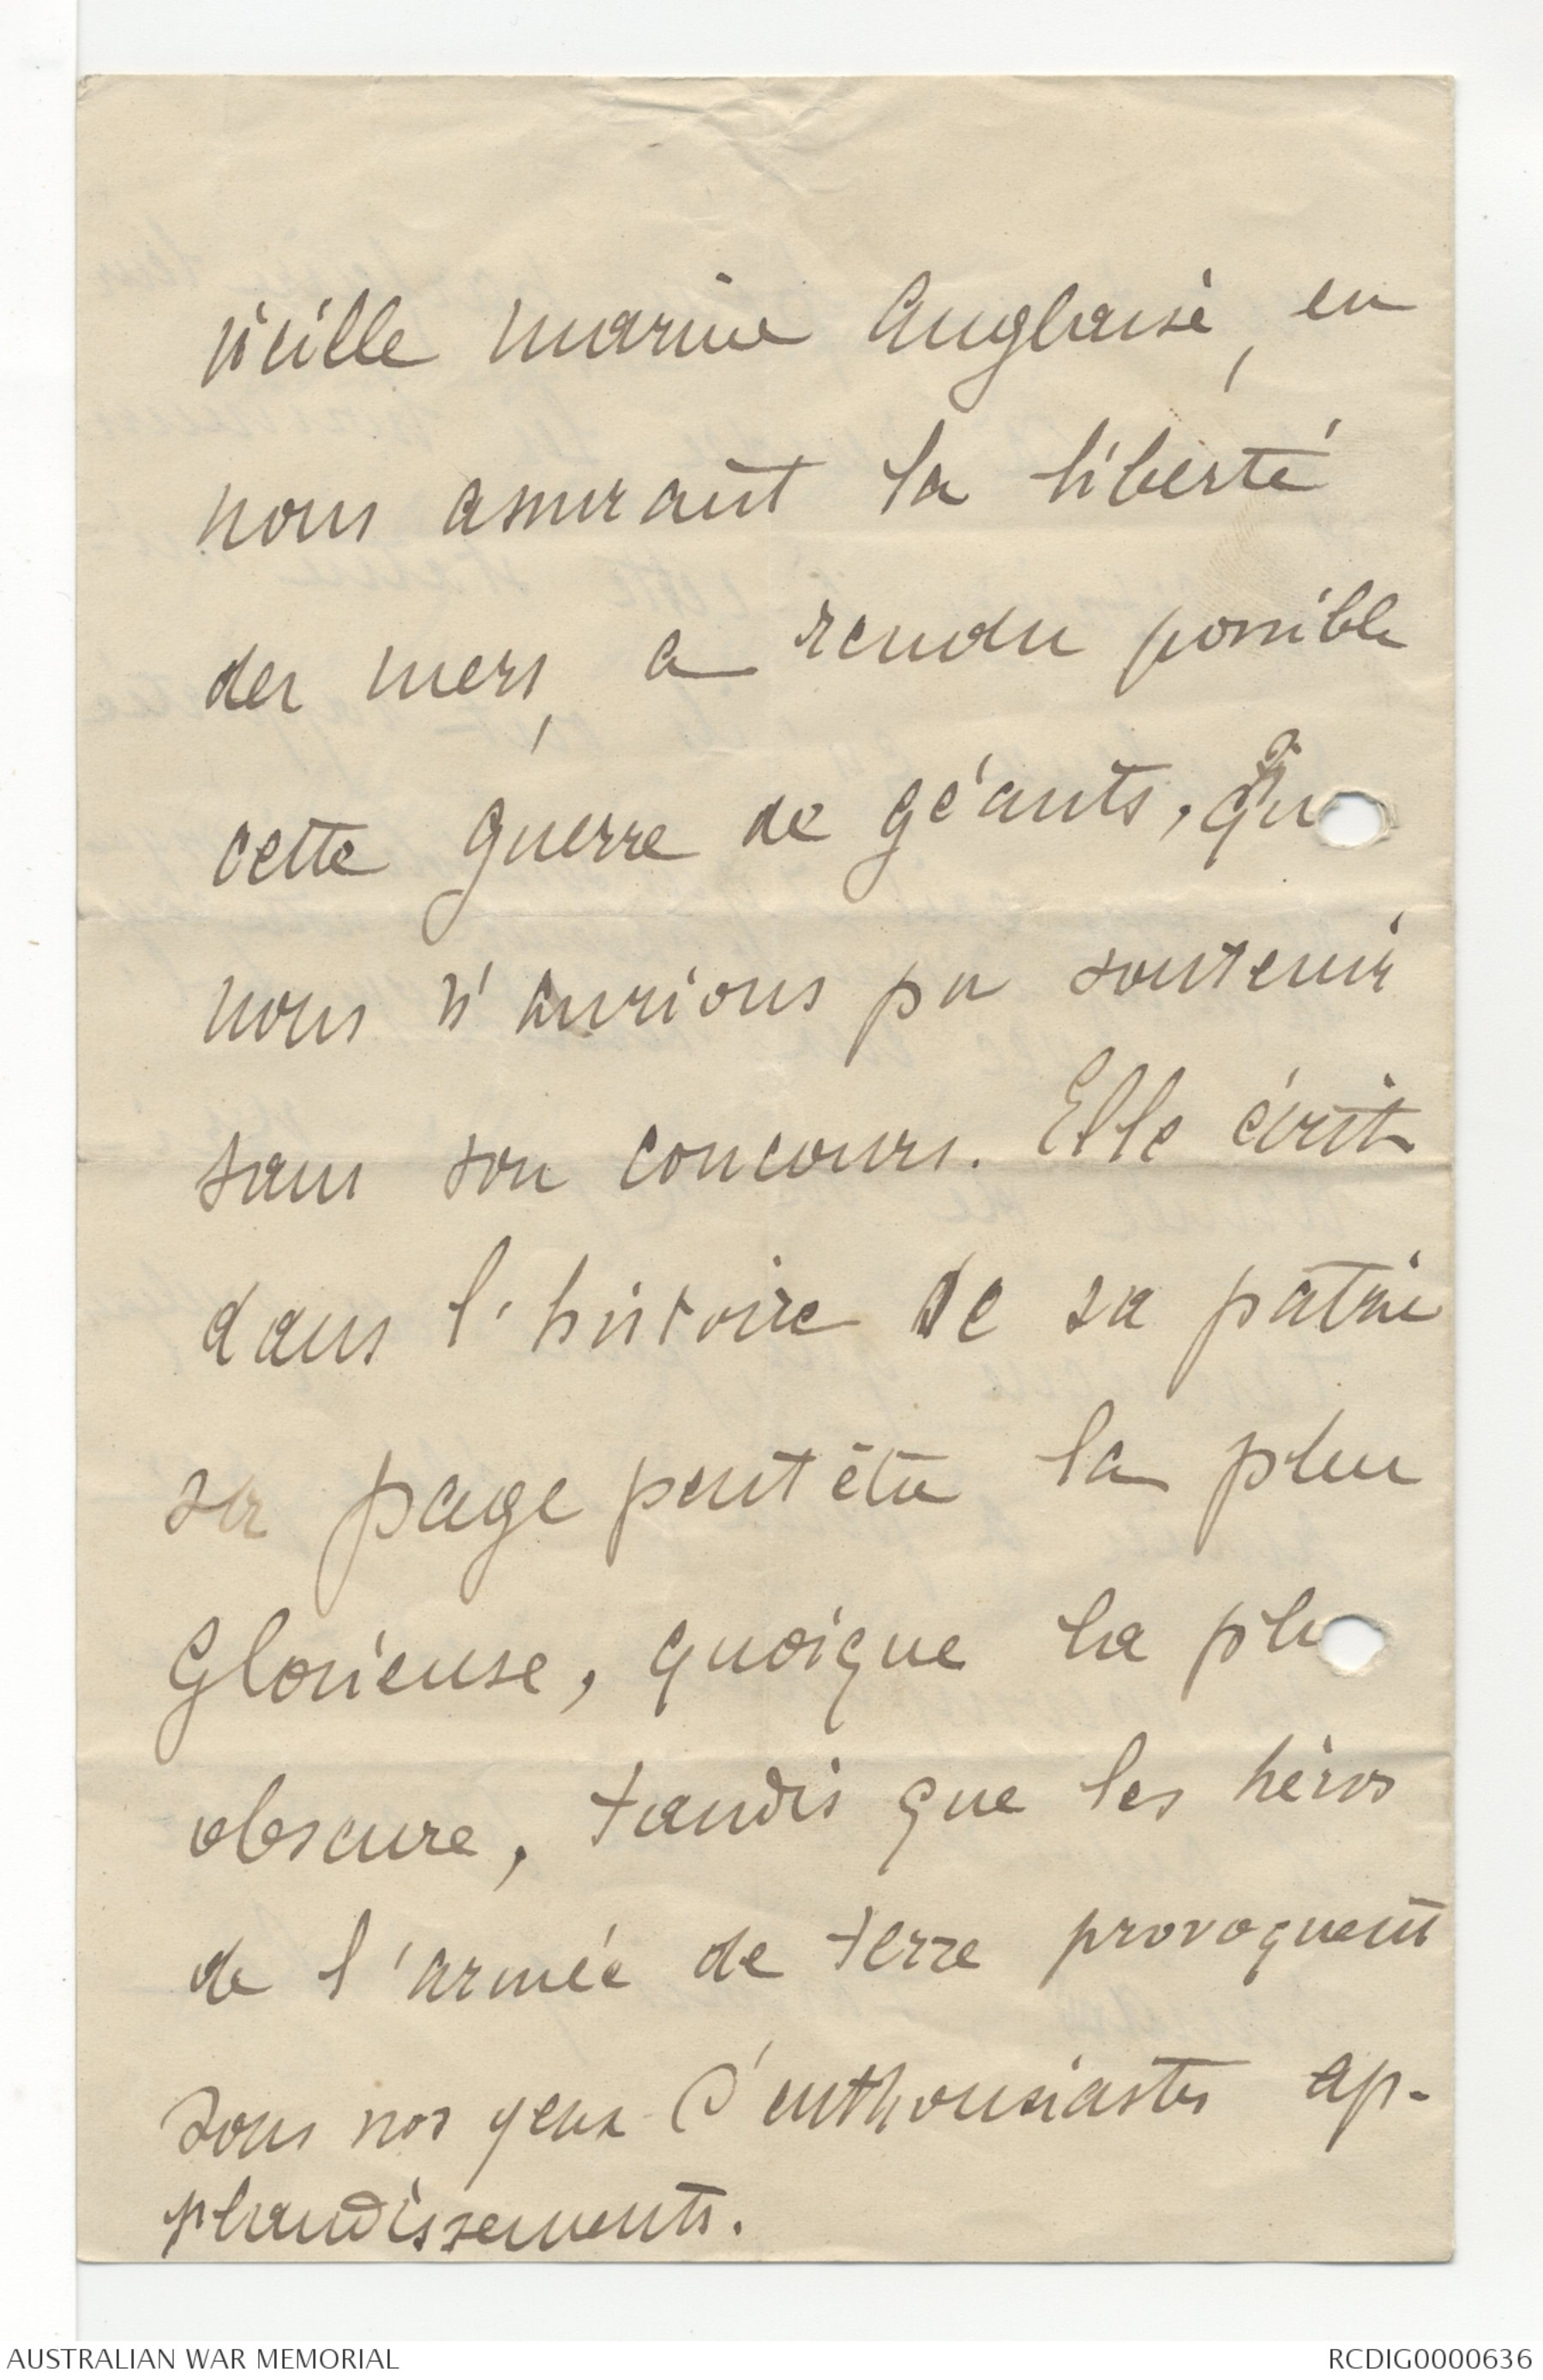 vieille marine Anglaise, en
nous assurant la liberté
des mers, a rendu possible
cette guerre de géants, qu
nous n'aurions pu soutenir
sans son concours. Elle écrit
dans l'histoire de sa patrie
sa page peut être la plus
Glorieuse, quoique la plu
obscure, tandis que les héros
de l'armée de terre provoquent
sous nos yeux d'enthousiastes ap-
plaudissements.
AUSTRALIAN WAR MEMORIAL
RCDIG0000636